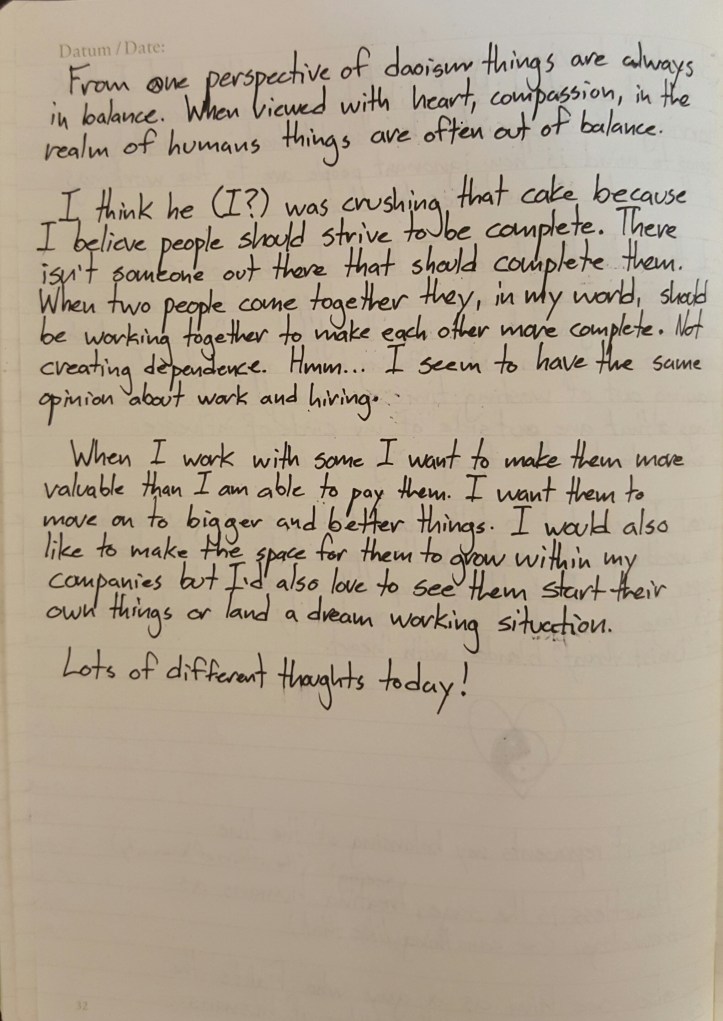 Datum / Date:
From one perspective of daoism things are always
in balance. When viewed with heart, compassion, in the
realm of humans things are often out of balance.
I think he (I?) was crushing that cake because
I believe people should strive to be complete. There
isn't someone out there that should complete them.
When two people come together they, in my world, should
be working together to make each other more complete. Not
creating dependence. Hmm... I seem to have the same
opinion about work and hiring.
When I work with some I want to make them more
valuable than I am able to pay them. I want them to
move on to bigger and better things. I would also
like to make the space for them to grow within my
companies but I'd also love to see them start their
own things or land a dream working situation.
Lots of different thoughts today!
32